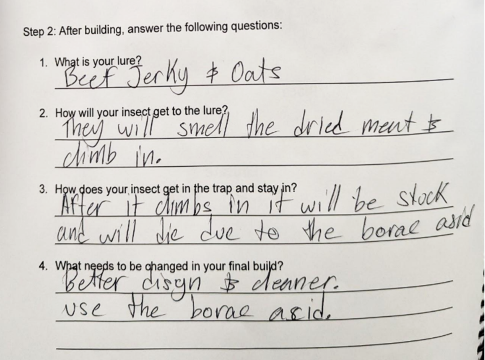 Step 2: After building, answer the following questions:
1. What is your lure?
Beef Jerky & Oats
2. How will your insect get to the lure?
They will smell the dried meat &
climb in.
3. How does your insect get in the trap and stay in?
After it climbs in it will be stock
and will die due to the borae asid
4. What needs to be changed in your final build?
Better disgn & cleaner.
use the borae asid.